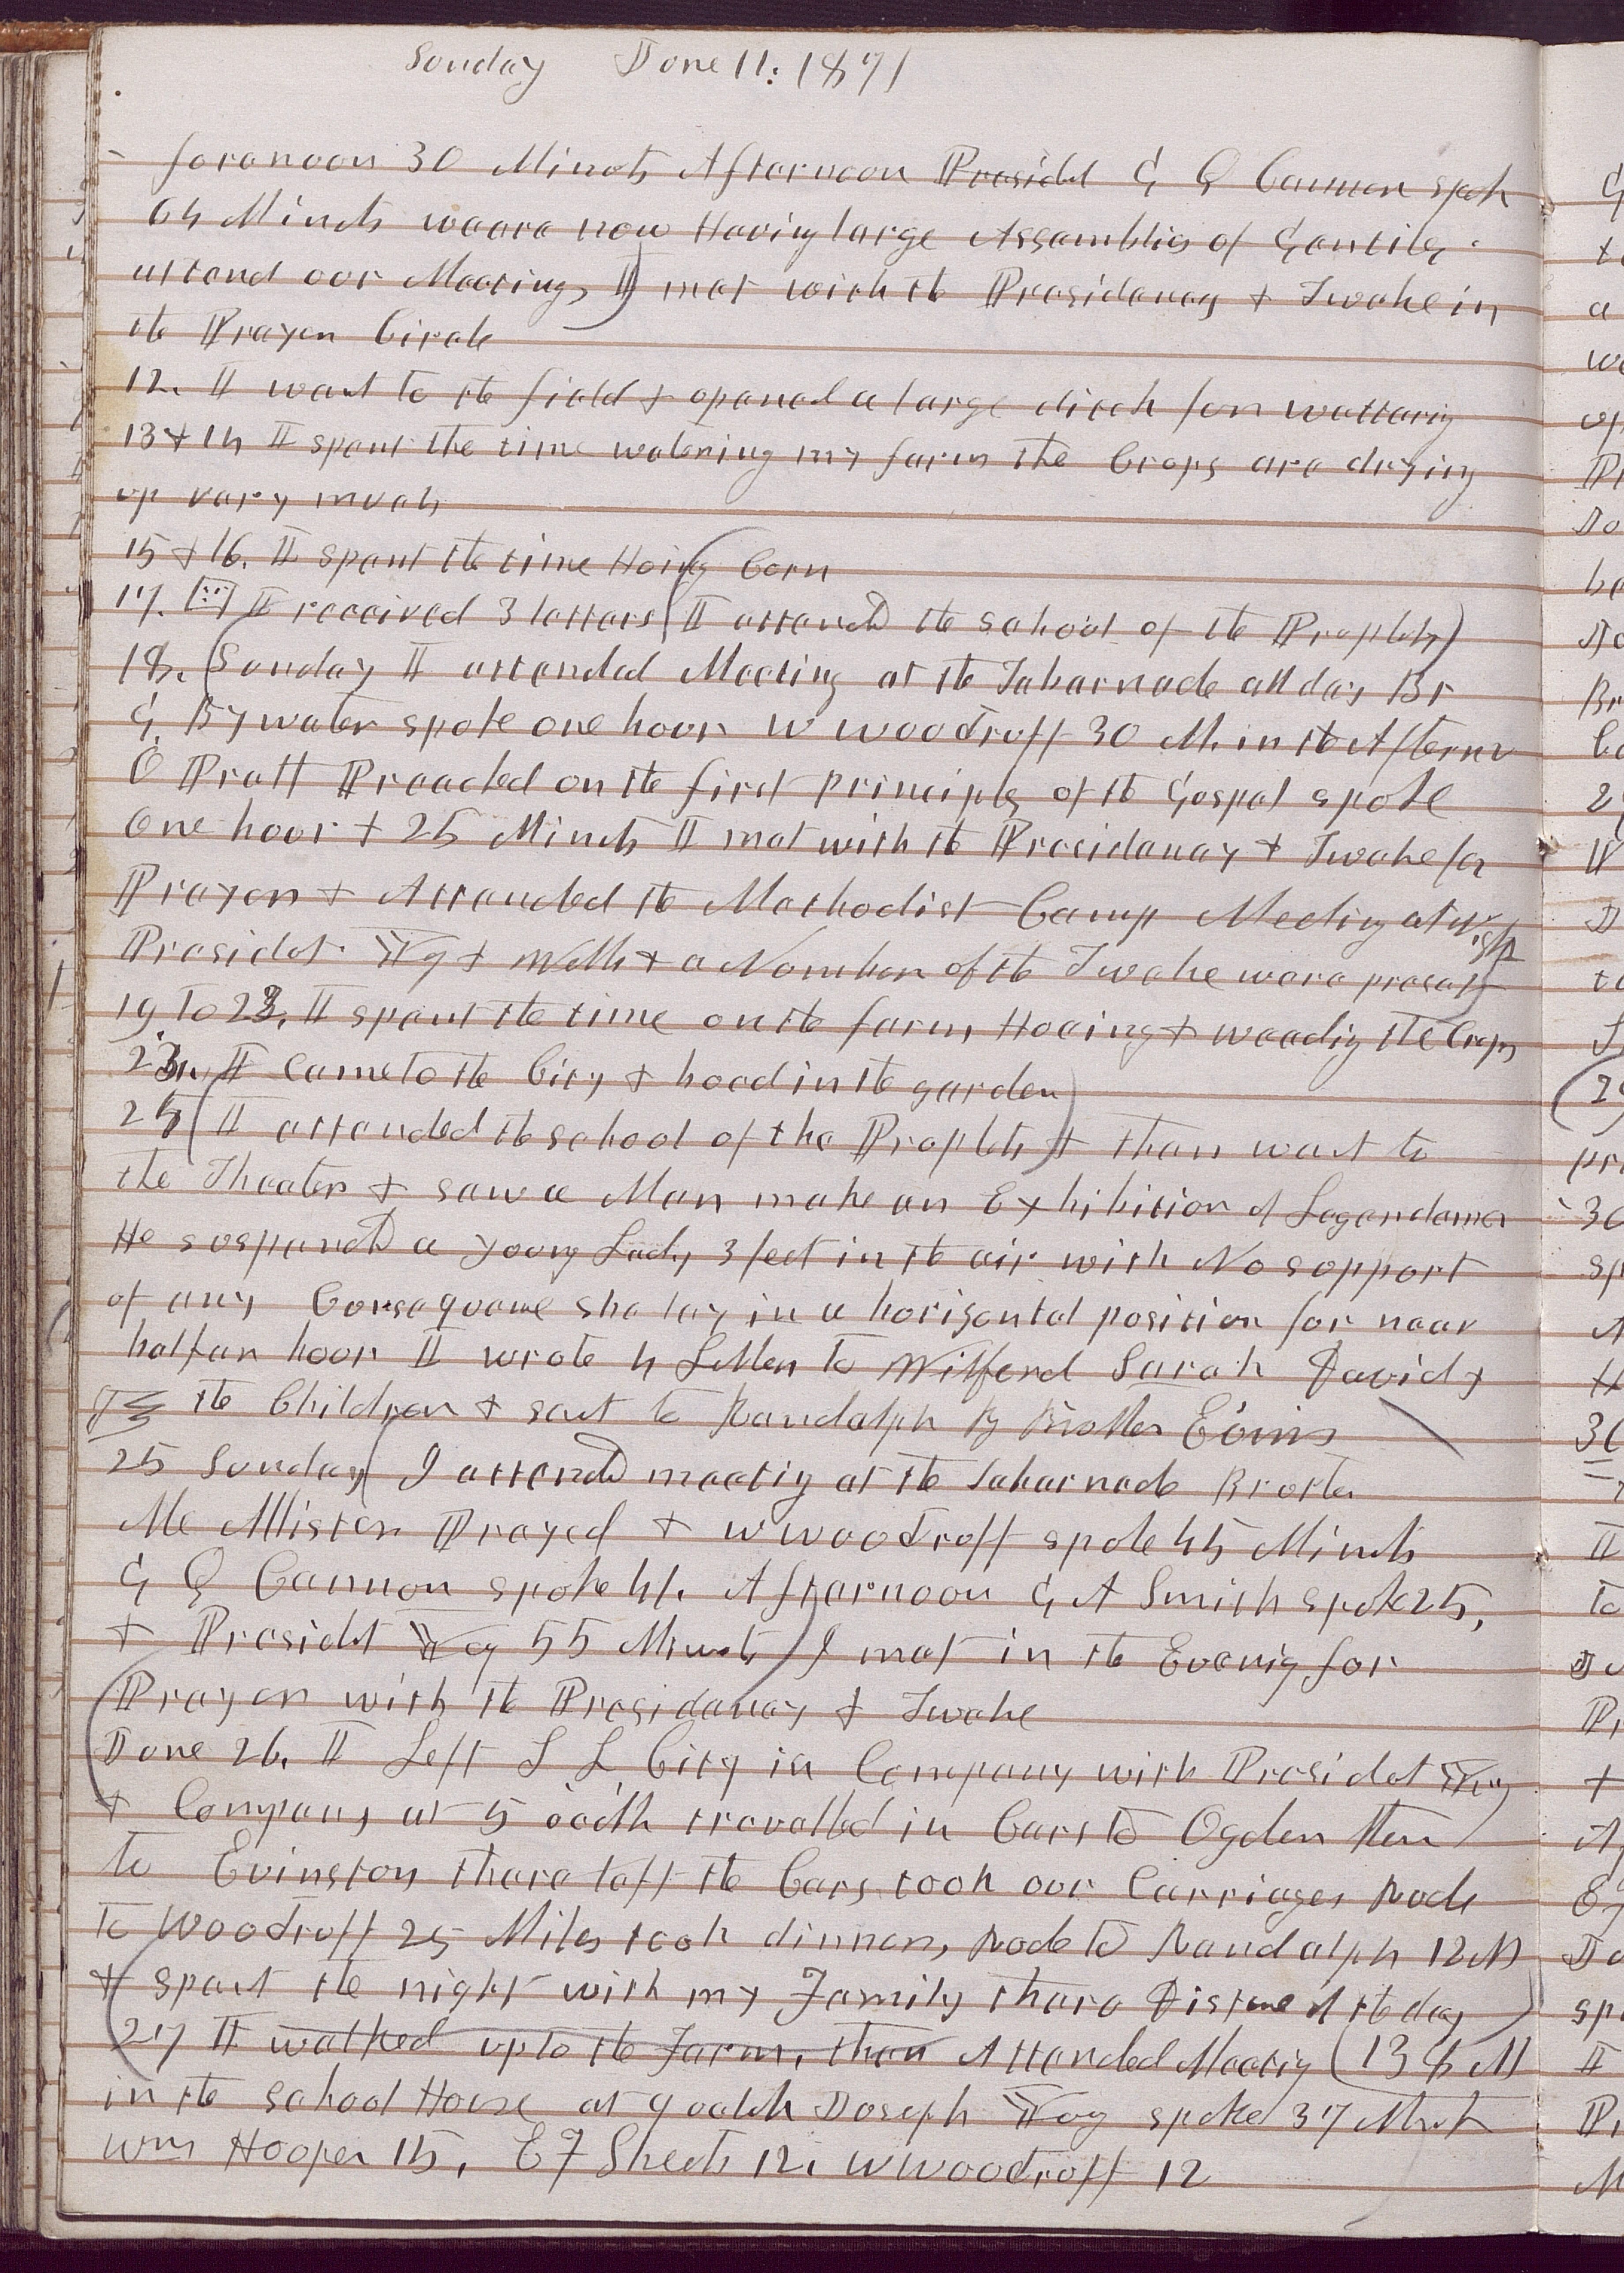 Sunday June 11: 1871
forenoon 30 Minuts Afternoon Presidet G Q Cannon spok
64 Minuts weare now Having large Assemblies of Gentiles
attend our Meetings I met with the Presidency & Twelve in
the Prayer Circle
12. I went to the field & opened a large ditch for wattering
13 & 14 I spent the time watering my farm The Crops are drying
up very much
15 & 16. I spent the time Hoing Corn
17. I received 3 letters (I attended the school of the Prophets)
18. (Sunday I attended Meeting at the Tabernacle all day Br
G. Bywater spoke one hour W Woodruff 30 M. in the Aftern
O Pratt Preached on the first principles of the Gospel spoke
One hour & 25 Minuts I met with the Presidency & Twelve for
Prayer & Attended the Methodist Camp Meeting at night
Presidet Yg & Wells & a Number of the Twelve were present
19 To 22, I spent the time on the farm, Hoeing & weeding the Crops
23. I Came to the City & hoed in the garden
24 (I attended the school of the Prophets) & then went to
the Theater & saw a Man make an Exhibition of Legerdamer
He suspended a young Lady 3 feet in the air with No support
of any Consequence she lay in a horizontal position for near
half an hour I wrote 4 Letters to Wilford Sarah David &
the Children & sent to Randolph By Brother
25 Sunday (I attended meeting at the Tabernacle Brother
Mc Allister Prayed & W Woodruff spoke 45 Minuts
G Q Cannon spoke 41. Afternoon G A Smith spoke 25,
& Presidet Yog 55 Minuts) I met in the Evenig for
Prayer with the Presidency & Twelve
June 26. I Left S L City in Company with Presidet Yog
& Company at 5 oclok travelled in Cars to Ogden then
to Evinston there left the Cars took our Carriages Rode
to Woodruff 25 Miles took dinner, Rode to Randolph 12 M
& spent the night with my Family there Distance of the day
27 I walked up to the Farm, then Attended Meetig (135 M
in the school House at 9 oclok Joseph Yog spoke 37 Minut
Wm Hooper 15, E F Sheets 12, W Woodruff 12